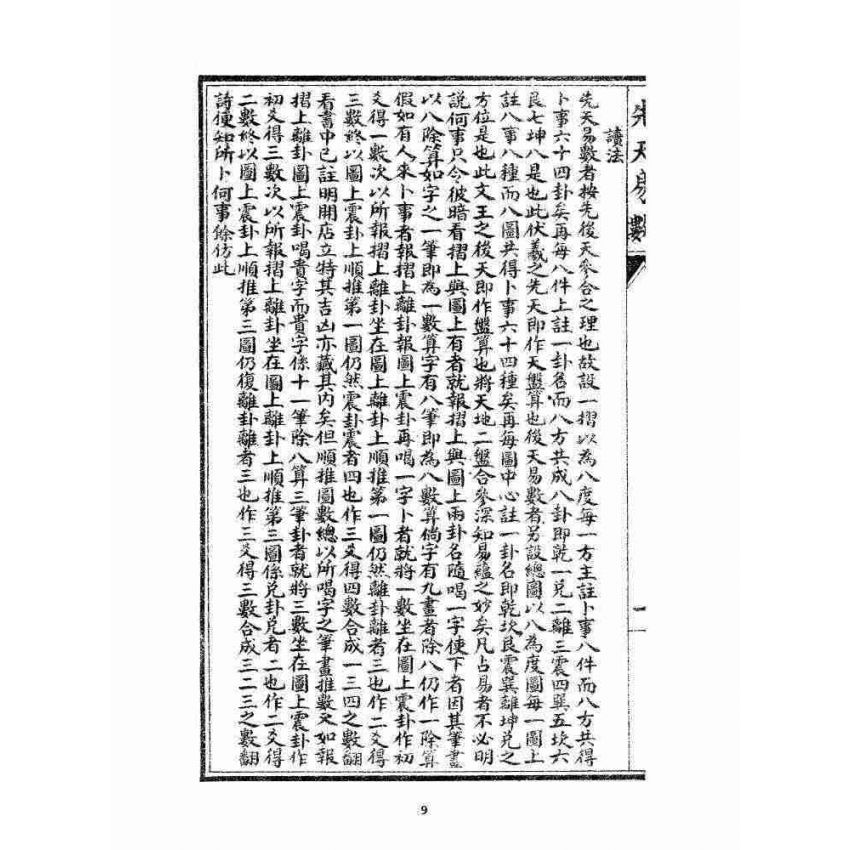 先天易數
一
讀法
先天易數者按先後天參合之理也故設一摺以為八度每一方主註卜事八件而八方共得
卜事六十四卦矣再每八件上註一卦名而八方共成八卦即乾一兑二離三震四巽五坎六
艮七坤八是也此伏羲之先天即作天盤算也後天易數者另設總圖以八為度圖每一圖上
註八事八種而八圖共得卜事六十四種矣再每圖中心註一卦名即乾坎艮震巽離坤兑之
方位是也此文王之後天即作盤算也將天地二盤合參深知易蘊之妙矣凡占易者不必明
說何事只令彼暗看摺上與圖上有者就報摺上與圖上兩卦名隨喝一字使下者因其筆畫
以八除算如字之一筆即為一數算字有八筆即為八數算倘字有九畫者除八仍作一除算
假如有人來卜事者報摺上離卦報圖上震卦再喝一字卜者就將一數坐在圖上震卦作初
爻得一數次以所報摺上離卦坐在圖上離卦上順推第一圖仍然離卦離者三也作二爻得
三數終以圖上震卦上順推第一圖仍然震卦震者四也作三爻得四數合成一三四之數翻
看書中已註明開店立特其吉凶亦藏其內矣但順推圖數總以所喝字之筆畫推數又如報
摺上離卦圖上震卦喝貴字而貴字係十一筆除八算三筆卦者就將三數坐在圖上震卦作
初爻得三數次以所報摺上離卦坐在圖上離卦上順推第三圖係兑卦兑者二也作二爻得
二數終以圖上震卦上順推第三圖仍復離卦離者三也作三爻得三數合成三二三之數翻
詩便知所卜何事餘仿此
9